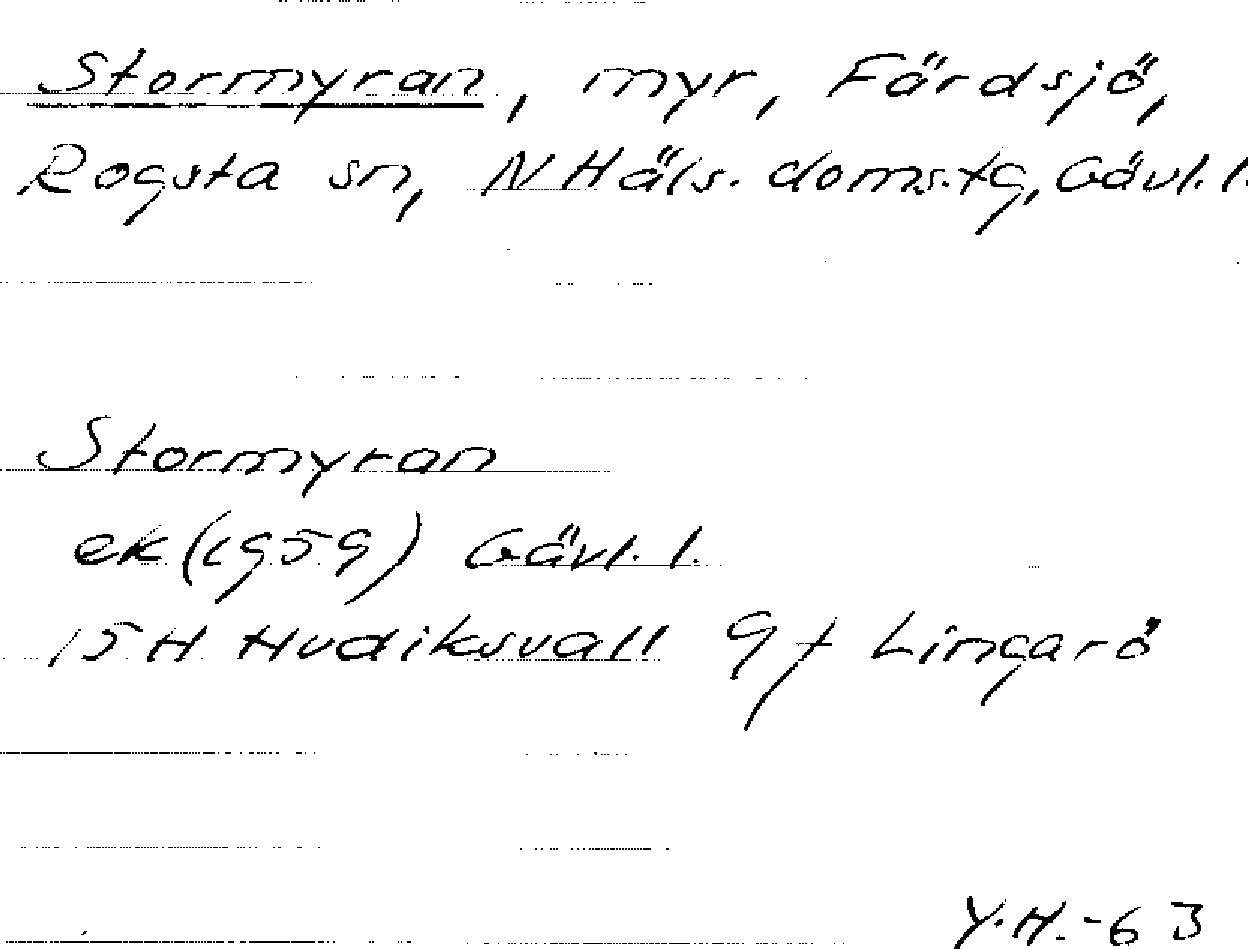 Stormyran, myr, Färdsjö,
Rogsta sn, N Häls. doms.tg, Gävl. l.
Stormyran
ek (1959) Gävl. l.
15H Hudiksvall 9f Lingarö
Y.H.-63